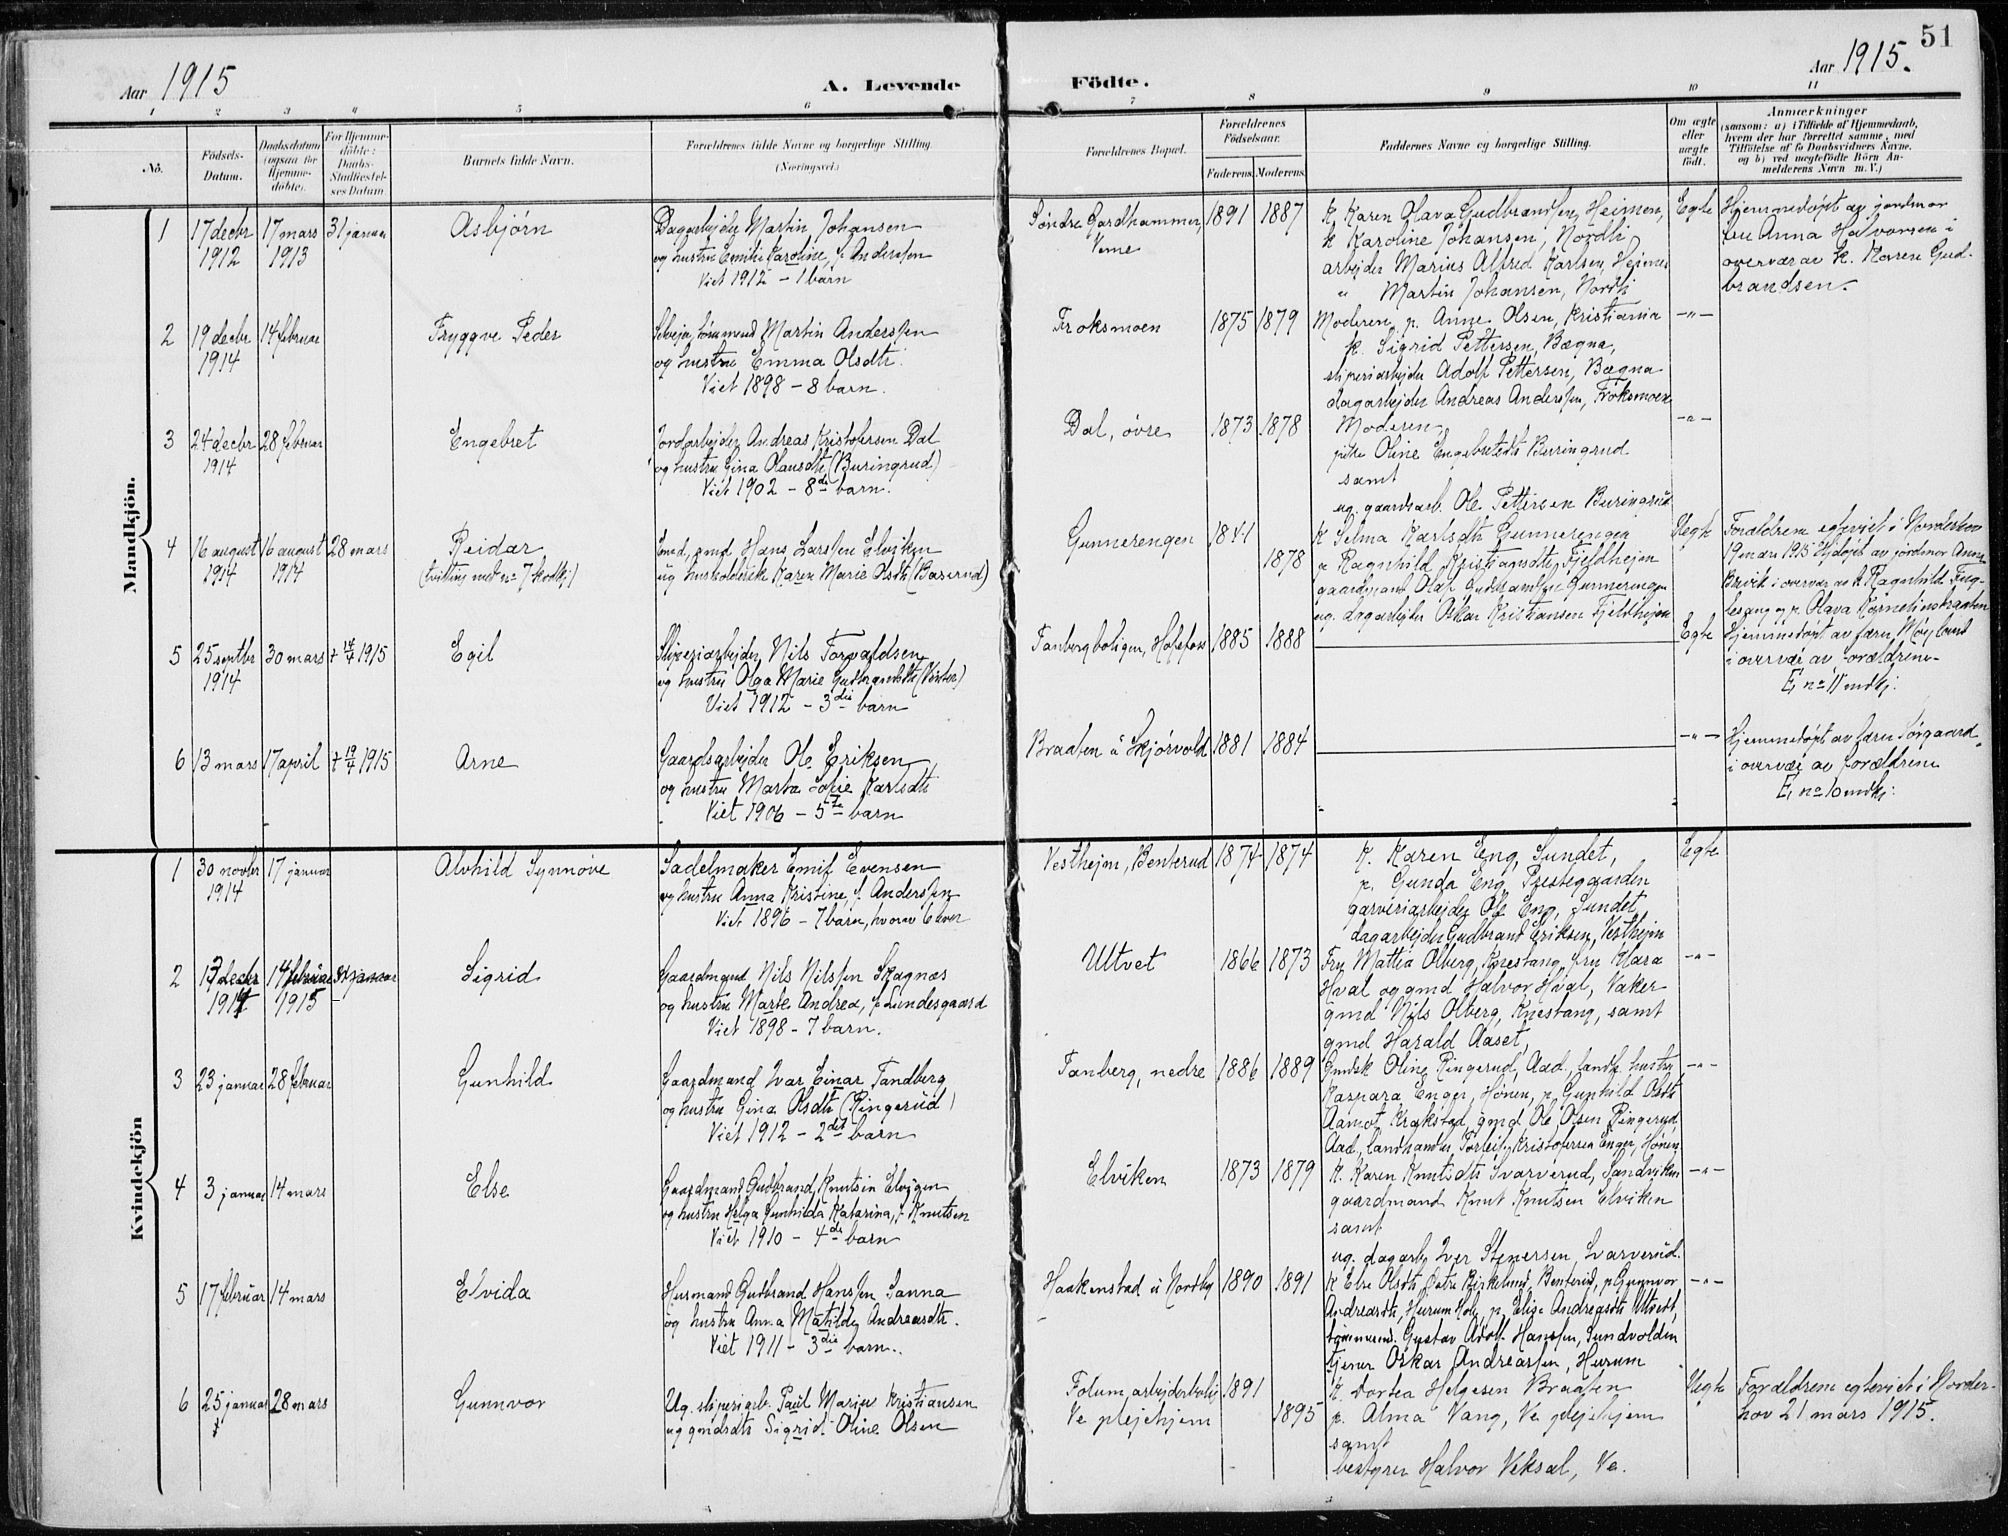 51
Aar 1915
A. Levende
Födte.
Aar 1915.
1 2 3 4 5 6 7 8 9 10 11
No.
Födsels-
Datum.
Daabsdatum
(ogsaa for
Hjemme-
döbte).
For Hjemme-
döbte:
Daabs-
Stadfæstel-
ses Datum
Barnets fulde Navn.
Forældrenes fulde Navne og borgerlige Stilling
(Næringsvei.)
Forældrenes Bopæl.
Forældrenes
Födselsaar.
Faderens Moderens
Faddernes Navne og borgerlige Stilling.
Om ægte
eller
uægte
födt.
Anmærkninger
(saasom: a) i Tilfælde af Hjemmedaab,
hvem der har forrettet samme, med
Tilföielse af to Daabsvidners Navne,
og b) ved uægtefödte Börn An-
melderens Navn m. V.)
Mandkjön.
1 17 decbr 17 mars 31 januar Asbjørn
1912 1913
Dagarbejder Martin Johansen
og hustru Emilie Karoline, f. Anderssen
Viet 1912 – 1 barn
Søndre Gardhammer, 1891 1887
Veme
K. Karen Olava Gudbrandsen, Heimen,
k Karoline Johansen, Nordli
arbejder Marius Alfred Karlsen, Hejmen
" Martin Johansen, Nordli
Egte
Hjemmedøpt av jordmor
fru Anna Halvorsen i
overvær av k. Karen Gud-
brandsen.
2 19 decbr 14 februar Tryggve Peder
1914
Martin Anderssen
og hustru Emma Olsdtr.
Viet 1898 – 8 barn.
Froksmoen 1875 1879
Moderen, p. Anne Olsen, Kristiania
k. Sigrid Pettersen, Bægna,
sliperiarbejder Adolf Pettersen, Bægna
dagarbejder Andreas Anderssen, Froksmoen
–"–
3 24 decbr 28 februar Engebret
1914
Jordarbejder Andreas Kristofersen Dal
og hustru Gina Olausdtr (Buringrud)
Viet 1902 – 8de barn.
Dal, øvre 1873 1878
Moderen,
pike Oline Engebretsdtr Buringrud
samt
ug. gaardsarb. Ole Pettersen Buringrud
–"–
4 16 august 16 august 28 mars Reidar
1914 1914 (tvilling med no 7 kvdkj:)
Hans Larssen Elviken
ug husholderske Karen Marie Olsdtr (Baserud)
Gunnerengen 1841
1878
K Selma Karlsdtr Gunnerengen
" Ragnhild Kristiansdtr, Fjeldhejm
gaardmand Olaf Gunnerengen
ug. dagarbejder Oskar Kristiansen Fjeldhejm
Uegte
Forældrene egteviet i Norderhov
19 mars 1915 Hjdøpt av jordmor Anna
Brevik i overvær av k Ragnhild Fug-
lesang og p. Olava Korneliusbraaten
5 25 septbr 30 mars + 14/4 1915 Egil
1914
Sliperiarbejder Nils Torvaldsen
og hustru Olga Marie Gudbrandsdtr (Vinter)
Viet 1912 – 3die barn
Tanbergboligen, Hofsfoss 1885 1888
Egte
Hjemmedøpt av faren
i overvær av forældrene
Ej no 11 mdkj:
6 13 mars 17 april + 19/4 1915 Arne
Gaardsarbejder Ole Eriksen
og hustru Marta Sofie Karlsdtr
Viet 1906 – 5te barn
Braaten u Skjørvold 1881 1884
–"–
Hjemmedøpt av faren Sørgaard
i overvær av forældrene
Ej no 10 mdkj:
Kvindekjön
1 30 novbr 17 januar Alvhild Synnøve
1914
Sadelmaker Emil Evensen
og hustru Anna Kristine, f. Anderssen
Viet 1896 – 7 barn, hvorav 6 lever
Vesthejm, Benterud 1874 1874
K. Karen Eng, Sundet,
p. Gunda Eng, Prestegaarden
garveriarbejder Ole Eng, Sundet
dagarbejder Gudbrand Eriksen, Vesthejm
Egte
2 17 decbr 14 februar 31 januar Sigrid
1914 1915
Gaardmand Nils Nilssen Skagnæs
og hustru Marte Andrea, f. Lundesgaard
Viet 1898 – 7 barn.
Ultvet 1866 1873
Fru Mattea Olberg, Knestang, fru Klara
Hval og gmd Halvor Hval, Vaker
gmd Nils Olberg, Knestang, samt
gmd Harald Aaset,
–"–
3 23 januar 28 februar Gunhild
Gaardmand Ivar Einar Tandberg
og hustru Gina Olsdtr (Ringerud)
Viet 1912 – 2det barn
Tanberg, nedre 1886 1889
Gmdsk Oline Ringerud, Aad., landh. hustru
Kaspara Enger, Hønen, p. Gunhild Olsdtr
Aamot Krakstad, gmd Ole Olsen Ringerud,
Aad., landhandler Torleif Kristofersen Enger, Hønen
–"–
4 3 januar 14 mars Else
Gaardmand Gudbrand Knutsen Elvigen
og hustru Helga Gunhilda Katarina, f. Knutsen
Viet 1910 – 4de barn
Elviken 1873 1879
K. Karen Knutsdtr Svarverud, Sandviken
gaardmand Knut Knutsen Elviken
samt
ug. dagarb. Iver Stenersen Svarverud.
–"–
5 17 februar 14 mars Elvida
Husmand Gudbrand Hanssen Sanna
og hustru Anna Matilde Andreasdtr.
Viet 1911 – 3die barn.
Haakenstad u Nordby 1890 1891
K Else Olsdtr Østre Kirkelund, Benterud, p Gunnvor
Andreasdtr, Hurum Hole, p. Elise Andreasdtr Ultvedt,
tømmermd. Gustav Adolf Hanssen, Sundvolden
tjener Oskar Andreassen, Hurum
–"–
6 25 januar 28 mars Gunnvor
Ug. sliperiarb. Paul Marius Kristiansen
ug gmdsdtr Sigrid Oline Olsen
Folum arbejderbolig 1891
Ve plejehjem 1895
K. Dortea Helgesen Braaten
p. Alma Vang, Ve plejehjem
samt
bestyrer Halvor Veksal, Ve.
Uegte
Forældrene egteviet i Norder-
hov 21 mars 1915.